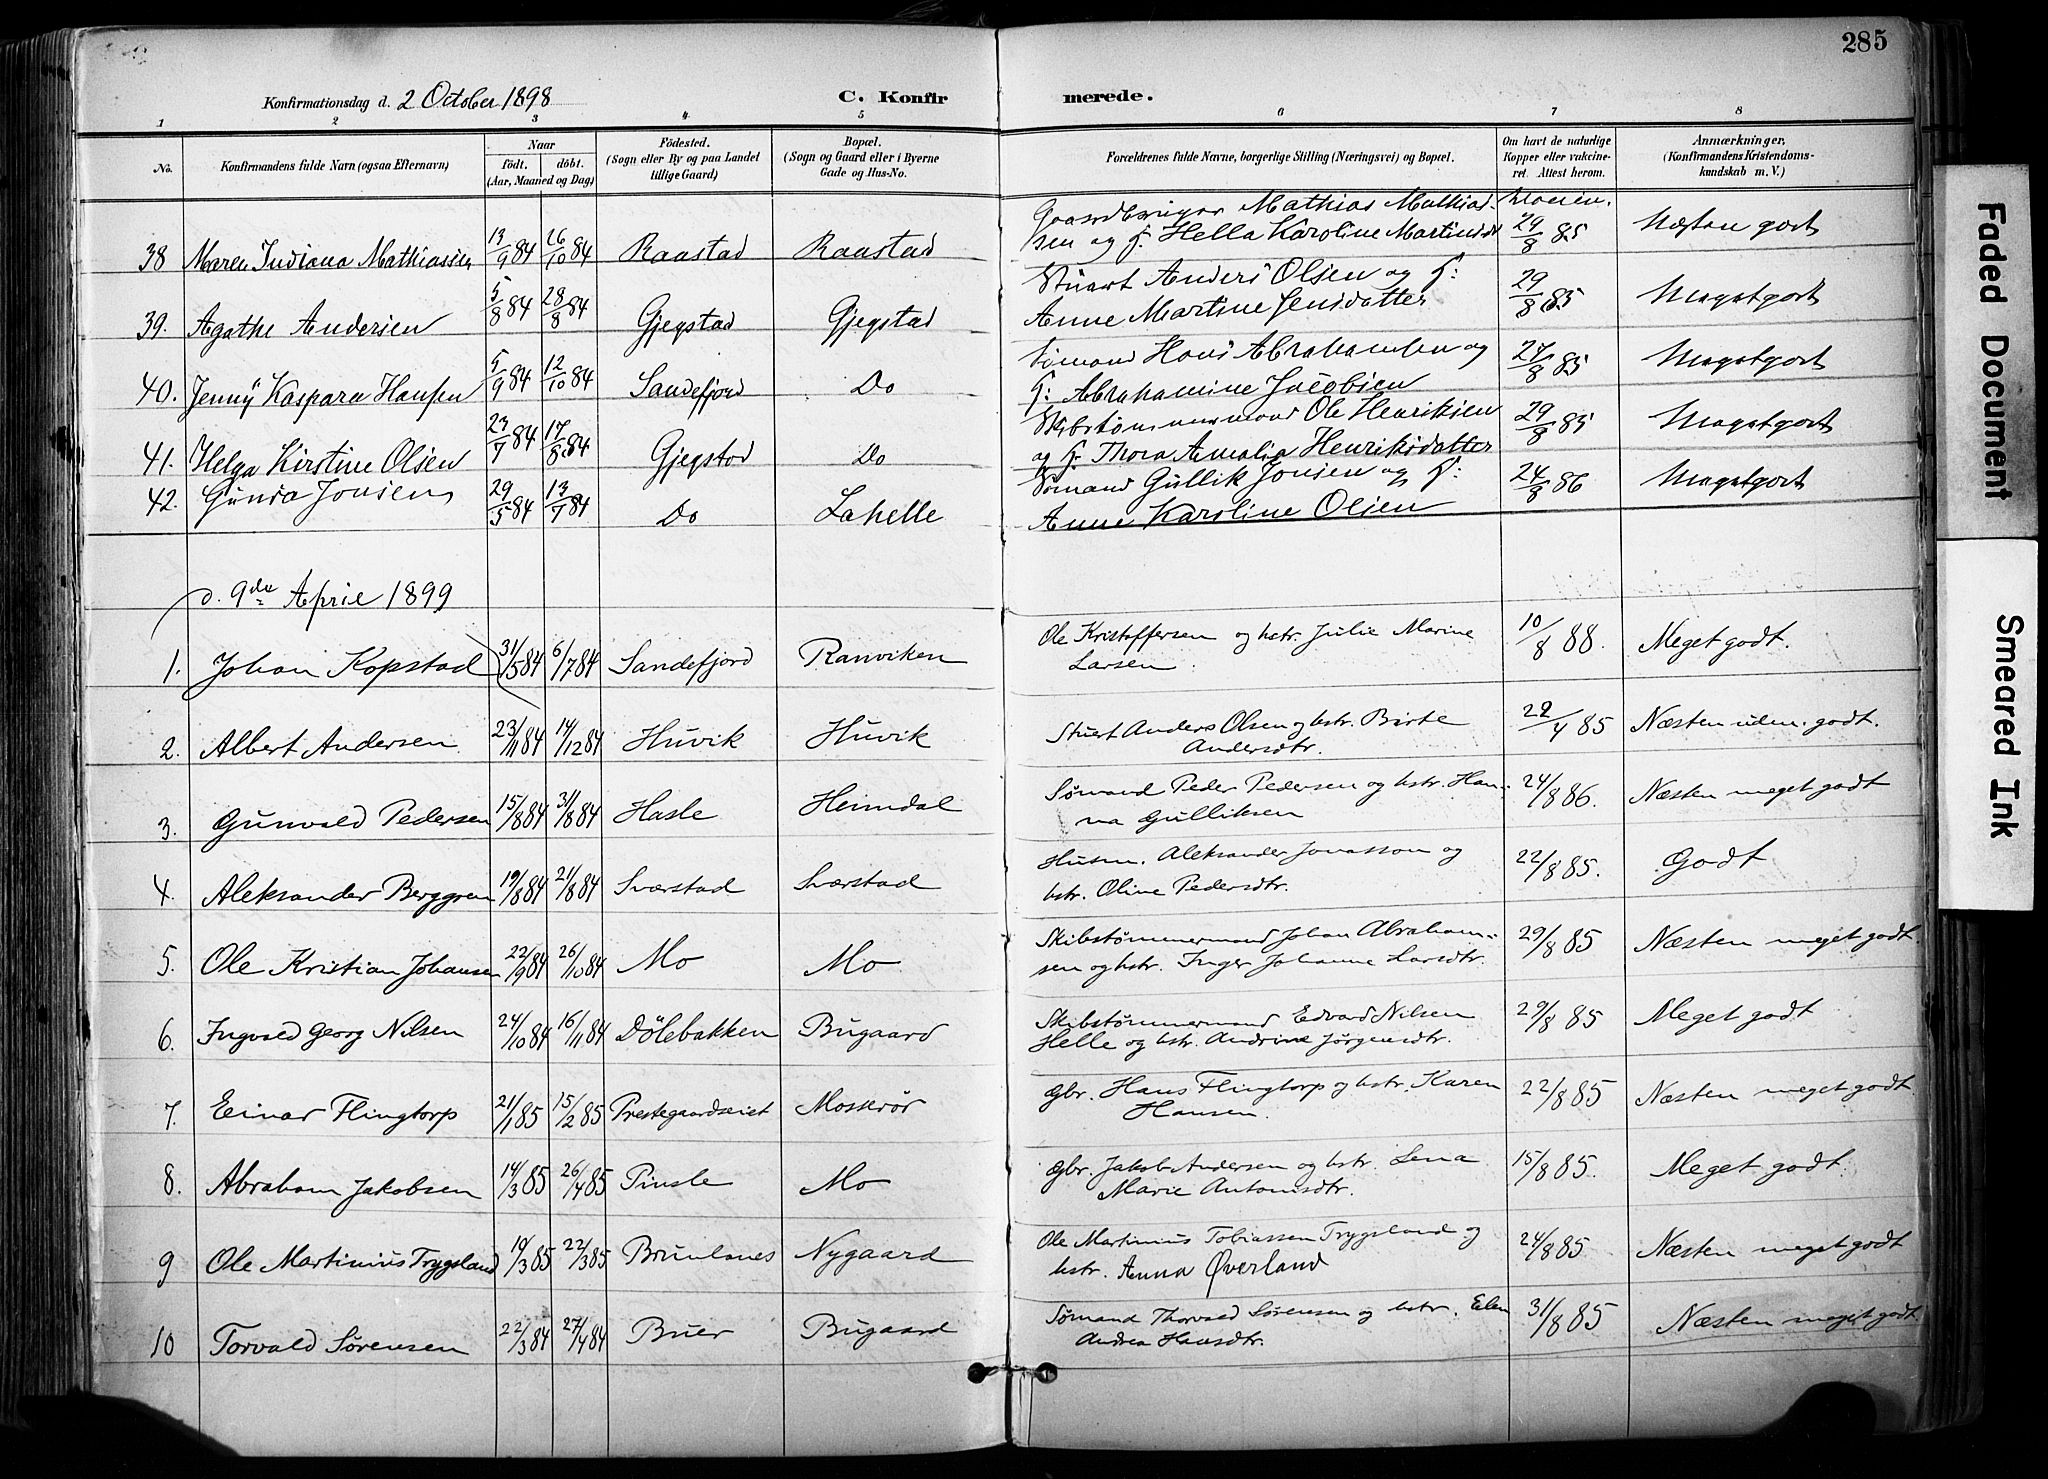 285
Konfirmationsdag d. 2 October 1898
C. Konfirmerede.
1 2 3 4 5 6 7 8
No. Konfirmandens fulde Navn (ogsaa Efternavn) Naar født. døbt. (Aar, Maaned og Dag) Fødested. (Sogn eller By og paa Landet tillige Gaard) Bopæl. (Sogn og Gaard eller i Byerne Gade og Hus-No. Forældrenes fulde Navne, borgerlige Stilling (Næringsvei) og Bopæl. Om havt de naturlige Kopper eller vakcineret. Attest herom. Anmærkninger. (Konfirmandens Kristendomskundskab m. V.)
38 Maren Indiana Mathiassen 13/9 84 26/10 84 Raastad Raastad Gaardbruger Mathias Mathiassen og H. Hella Karoline Martinsdt 29/8 85 Næsten godt
39. Agathe Andersen 5/8 84 28/8 84 Gjegstad Gjegstad Stuert Anders Olsen og H: Anne Martine Jensdatter 29/8 85 Megetgodt
40. Jenny Kaspara Hansen 5/9 84 12/10 84 Sandefjord Do Sømand Hans Abrahamsen og H: Abrahamine Jacobsen 27/8 85 Megetgodt
41. Helga Kirstine Olsen 23/7 84 17/8 84 Gjegstad Do Skibstømmermand Ole Henriksen og H. Thora Amalia Henriksdatter 29/8 85 Megetgodt
42. Gunda Jonsen 29/5 84 13/7 84 Do Lahelle Sømand Gullik Jonsen og H: Anne Karoline Olsen 24/8 86 Megetgodt
d. 9de April 1899
1. Johan Kopstad 31/5 84 6/7 84 Sandefjord Ranviken Ole Kristoffersen og hstr. Julie Marine Larsen 10/8 88. Meget godt.
2. Albert Andersen 23/11 84 14/12 84 Huvik Huvik Stuert Anders Olsen og hstr. Birte Andersdtr. 22/4 85 Næsten udm. godt.
3. Gunvald Pedersen 15/8 84 31/8 84 Hasle Heimdal Sømand Peder Pedersen og hstr. Hanna Gulliksen 24/8 86. Næsten meget godt
4 Aleksander Berggren 19/8 84 21/8 84 Sværstad Sværstad Husm. Aleksander Jonasson og hstr. Oline Pedersdtr. 22/8 85. Godt
5. Ole Kristian Johansen 22/9 84 26/10 84 Mo Mo Skibstømmermand Johan Abrahamsen og hstr. Inger Johanne Larsdtr. 29/8 85 Næsten meget godt.
6. Ingvald Georg Nilsen 24/10 84 16/11 84 Dølebakken Bugaard Skibstømmermand Edvard Nilsen Helle og hstr. Andrine Jørgensdtr. 29/8 85 Meget godt
7. Einar Flingtorp 21/1 85 15/2 85 Prestegaardseiet Mosserør Gbr. Hans Flingtorp og hstr. Karen Hansen. 22/8 85 Næsten meget godt
8. Abraham Jakobsen 14/3 85 26/4 85 Pinsle Mo Gbr. Jakob Andersen og hstr. Lena Marie Antonisdtr. 15/8 85. Meget godt.
9 Ole Martinius Trygsland 19/3 85 22/3 85 Brunlanes Nygaard Ole Martinius Tobiassen Trygsland og hstr. Anna Øverland 24/8 85 Næsten meget godt
10 Torvald Sørensen 22/3 84 27/4 84 Buer Bugaard Sømand Thorvald Sørensen og hstr. Elen Andrea Hansdtr. 31/8 85 Næsten meget godt.
Faded Document
Smeared Ink